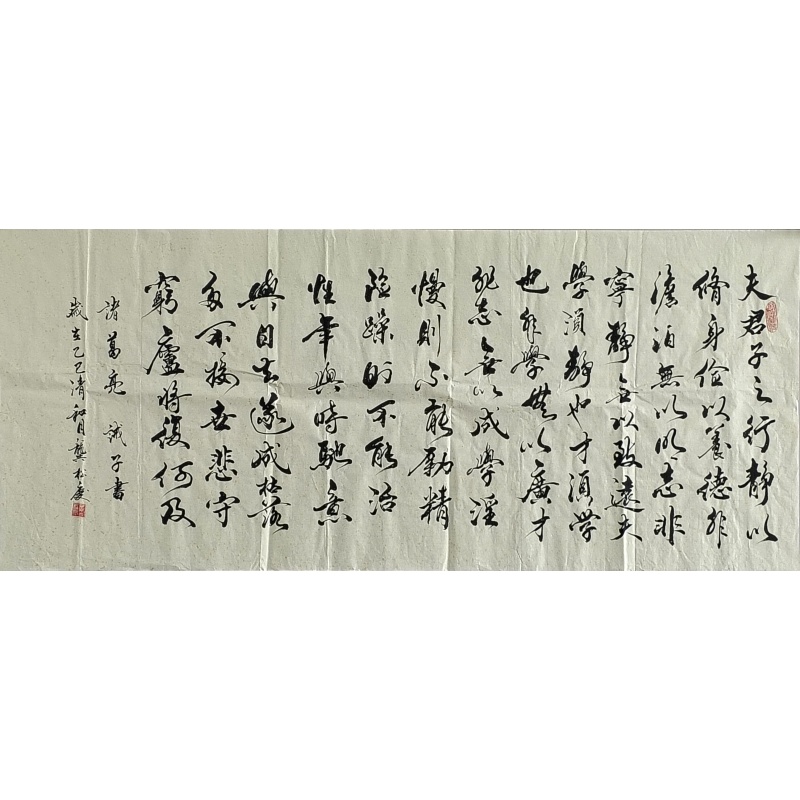 夫君子之行靜以
脩身儉以養德非
澹泊無以明志非
寧靜無以致遠夫
學須靜也才須学
也非學無以廣才
非志無以成學淫
慢則不能勵精
險躁則不能治
性年與時馳意
與日去遂成枯落
多不接世悲守
窮廬將復何及
諸葛亮誡子書
歲在乙巳清和月龔松慶